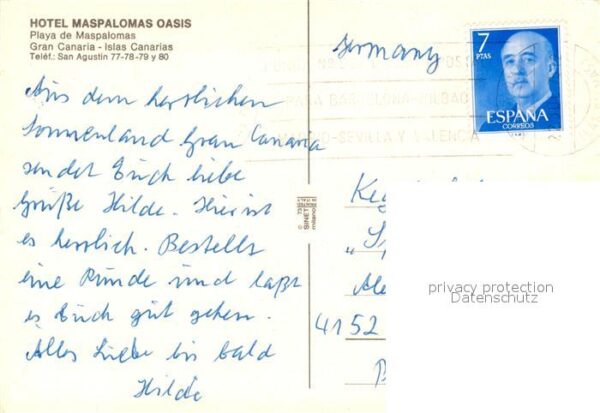 HOTEL MASPALOMAS OASIS
Playa de Maspalomas
Gran Canaria - Islas Canarias
Teléf.: San Agustin 77-78-79 y 80
Germany
7
PTAS
ESPAÑA
CORREOS
BARCELONA-BILBAO
MADRID-SEVILLA Y VALENCIA
Aus dem herrlichen
Sonnenland Gran Canaria
sendet Euch liebe
Grüße Hilde. Hier ist
es herrlich. Bestells
eine Runde und laßt
es Euch gut gehen.
Alles Liebe bis bald
Hilde
4152
privacy protection
Datenschutz